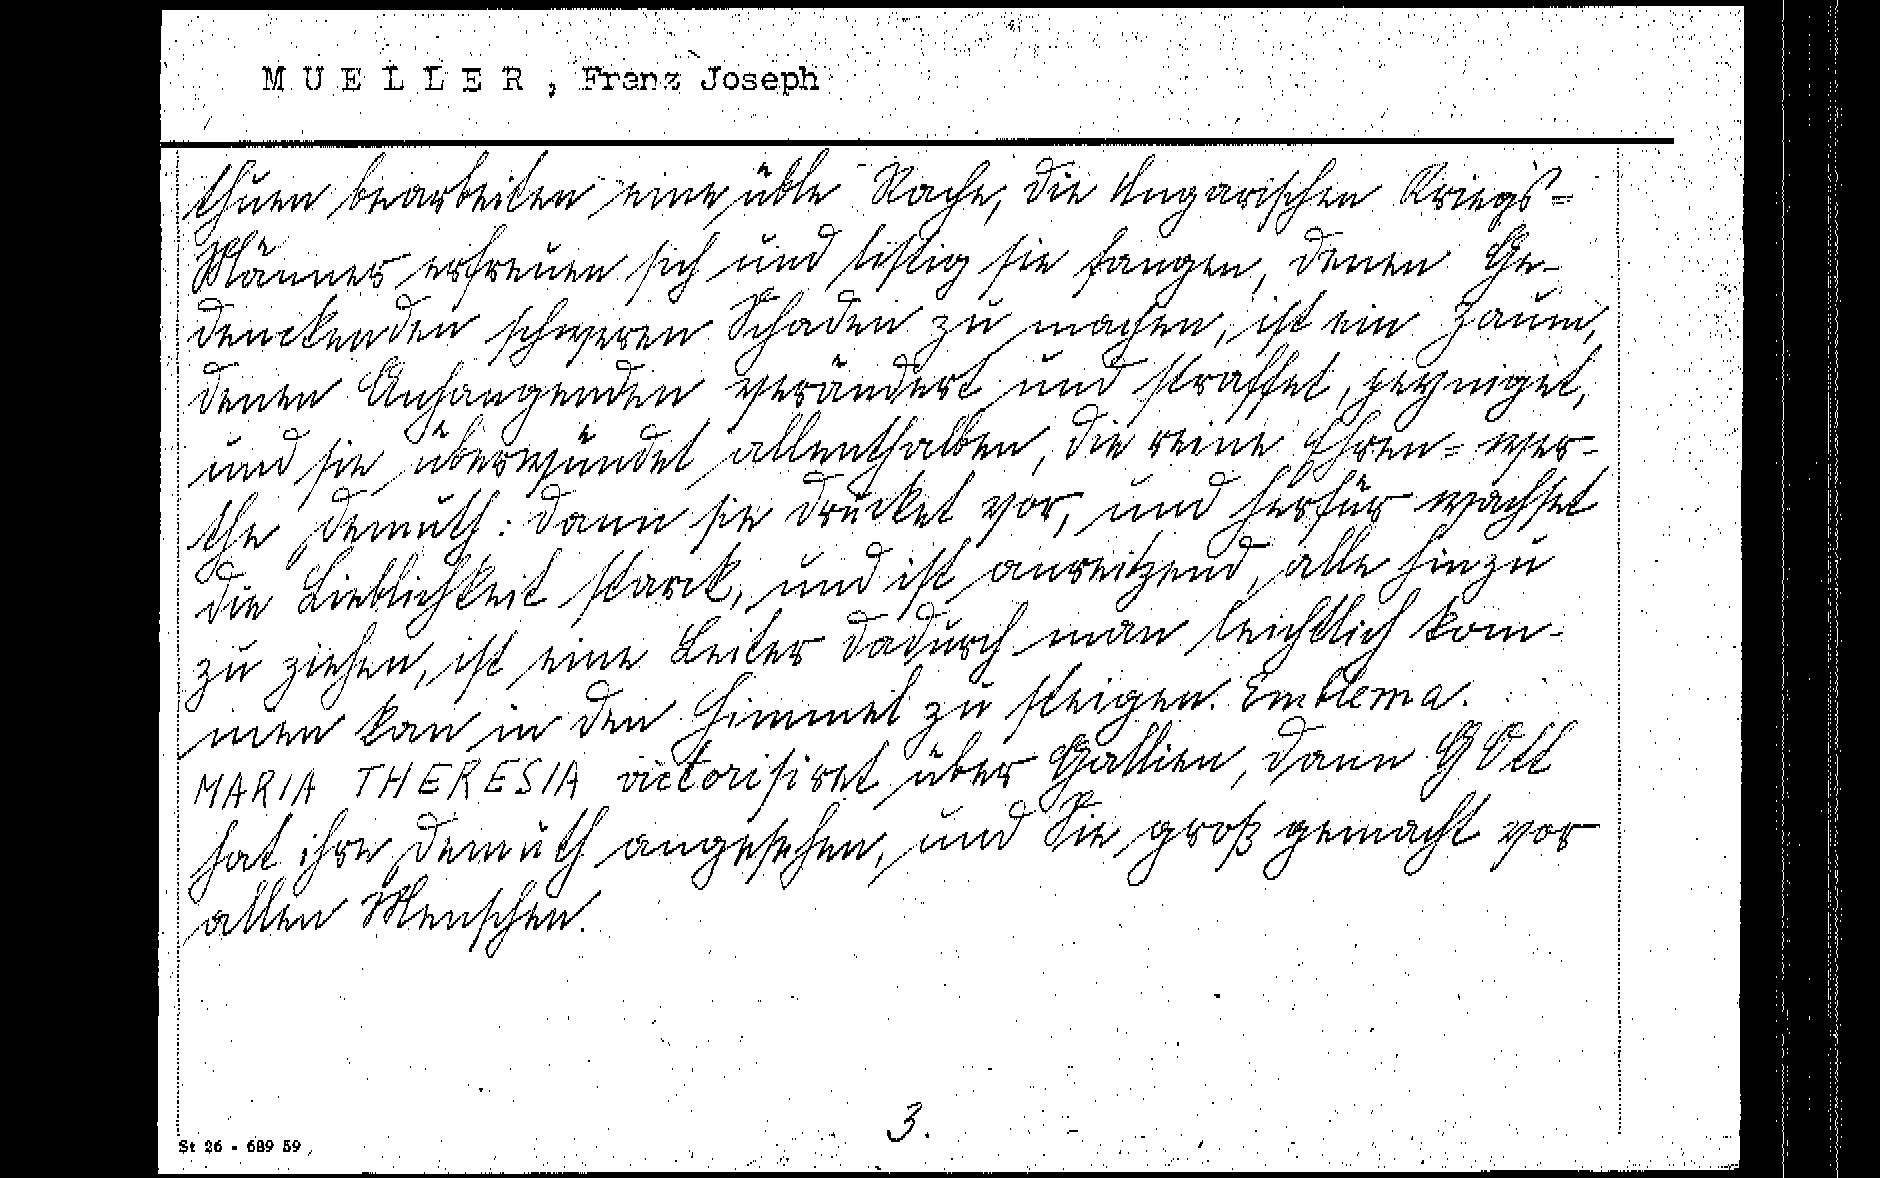 M U E L L E R , Franz Joseph
thuen bearbeiten eine üble Rache, die Ungarischen Kriegs=
Männer erfreuen sich und listig sie fangen, denen Ge-
denckenden schweren Schaden zu machen, ist ein Zaum,
denen Anhangenden verändert und straffet, peyniget,
und sie überwündet allenthalben, die reine Ehren= wer-
the Demuth: dann sie drucket vor, und herfür wachset
die Lieblichkeit starck, und ist anreitzend, alle hinzu
zu ziehen, ist eine Leiter dadurch man leichtlich kom-
men kan in den Himmel zu steigen. Emblema.
MARIA THERESIA victorisiret über Gallien, dann GOtt
hat ihre Demuth angesehen, und Sie groß gemacht vor
allen Menschen.
3.
St 26 - 689 59